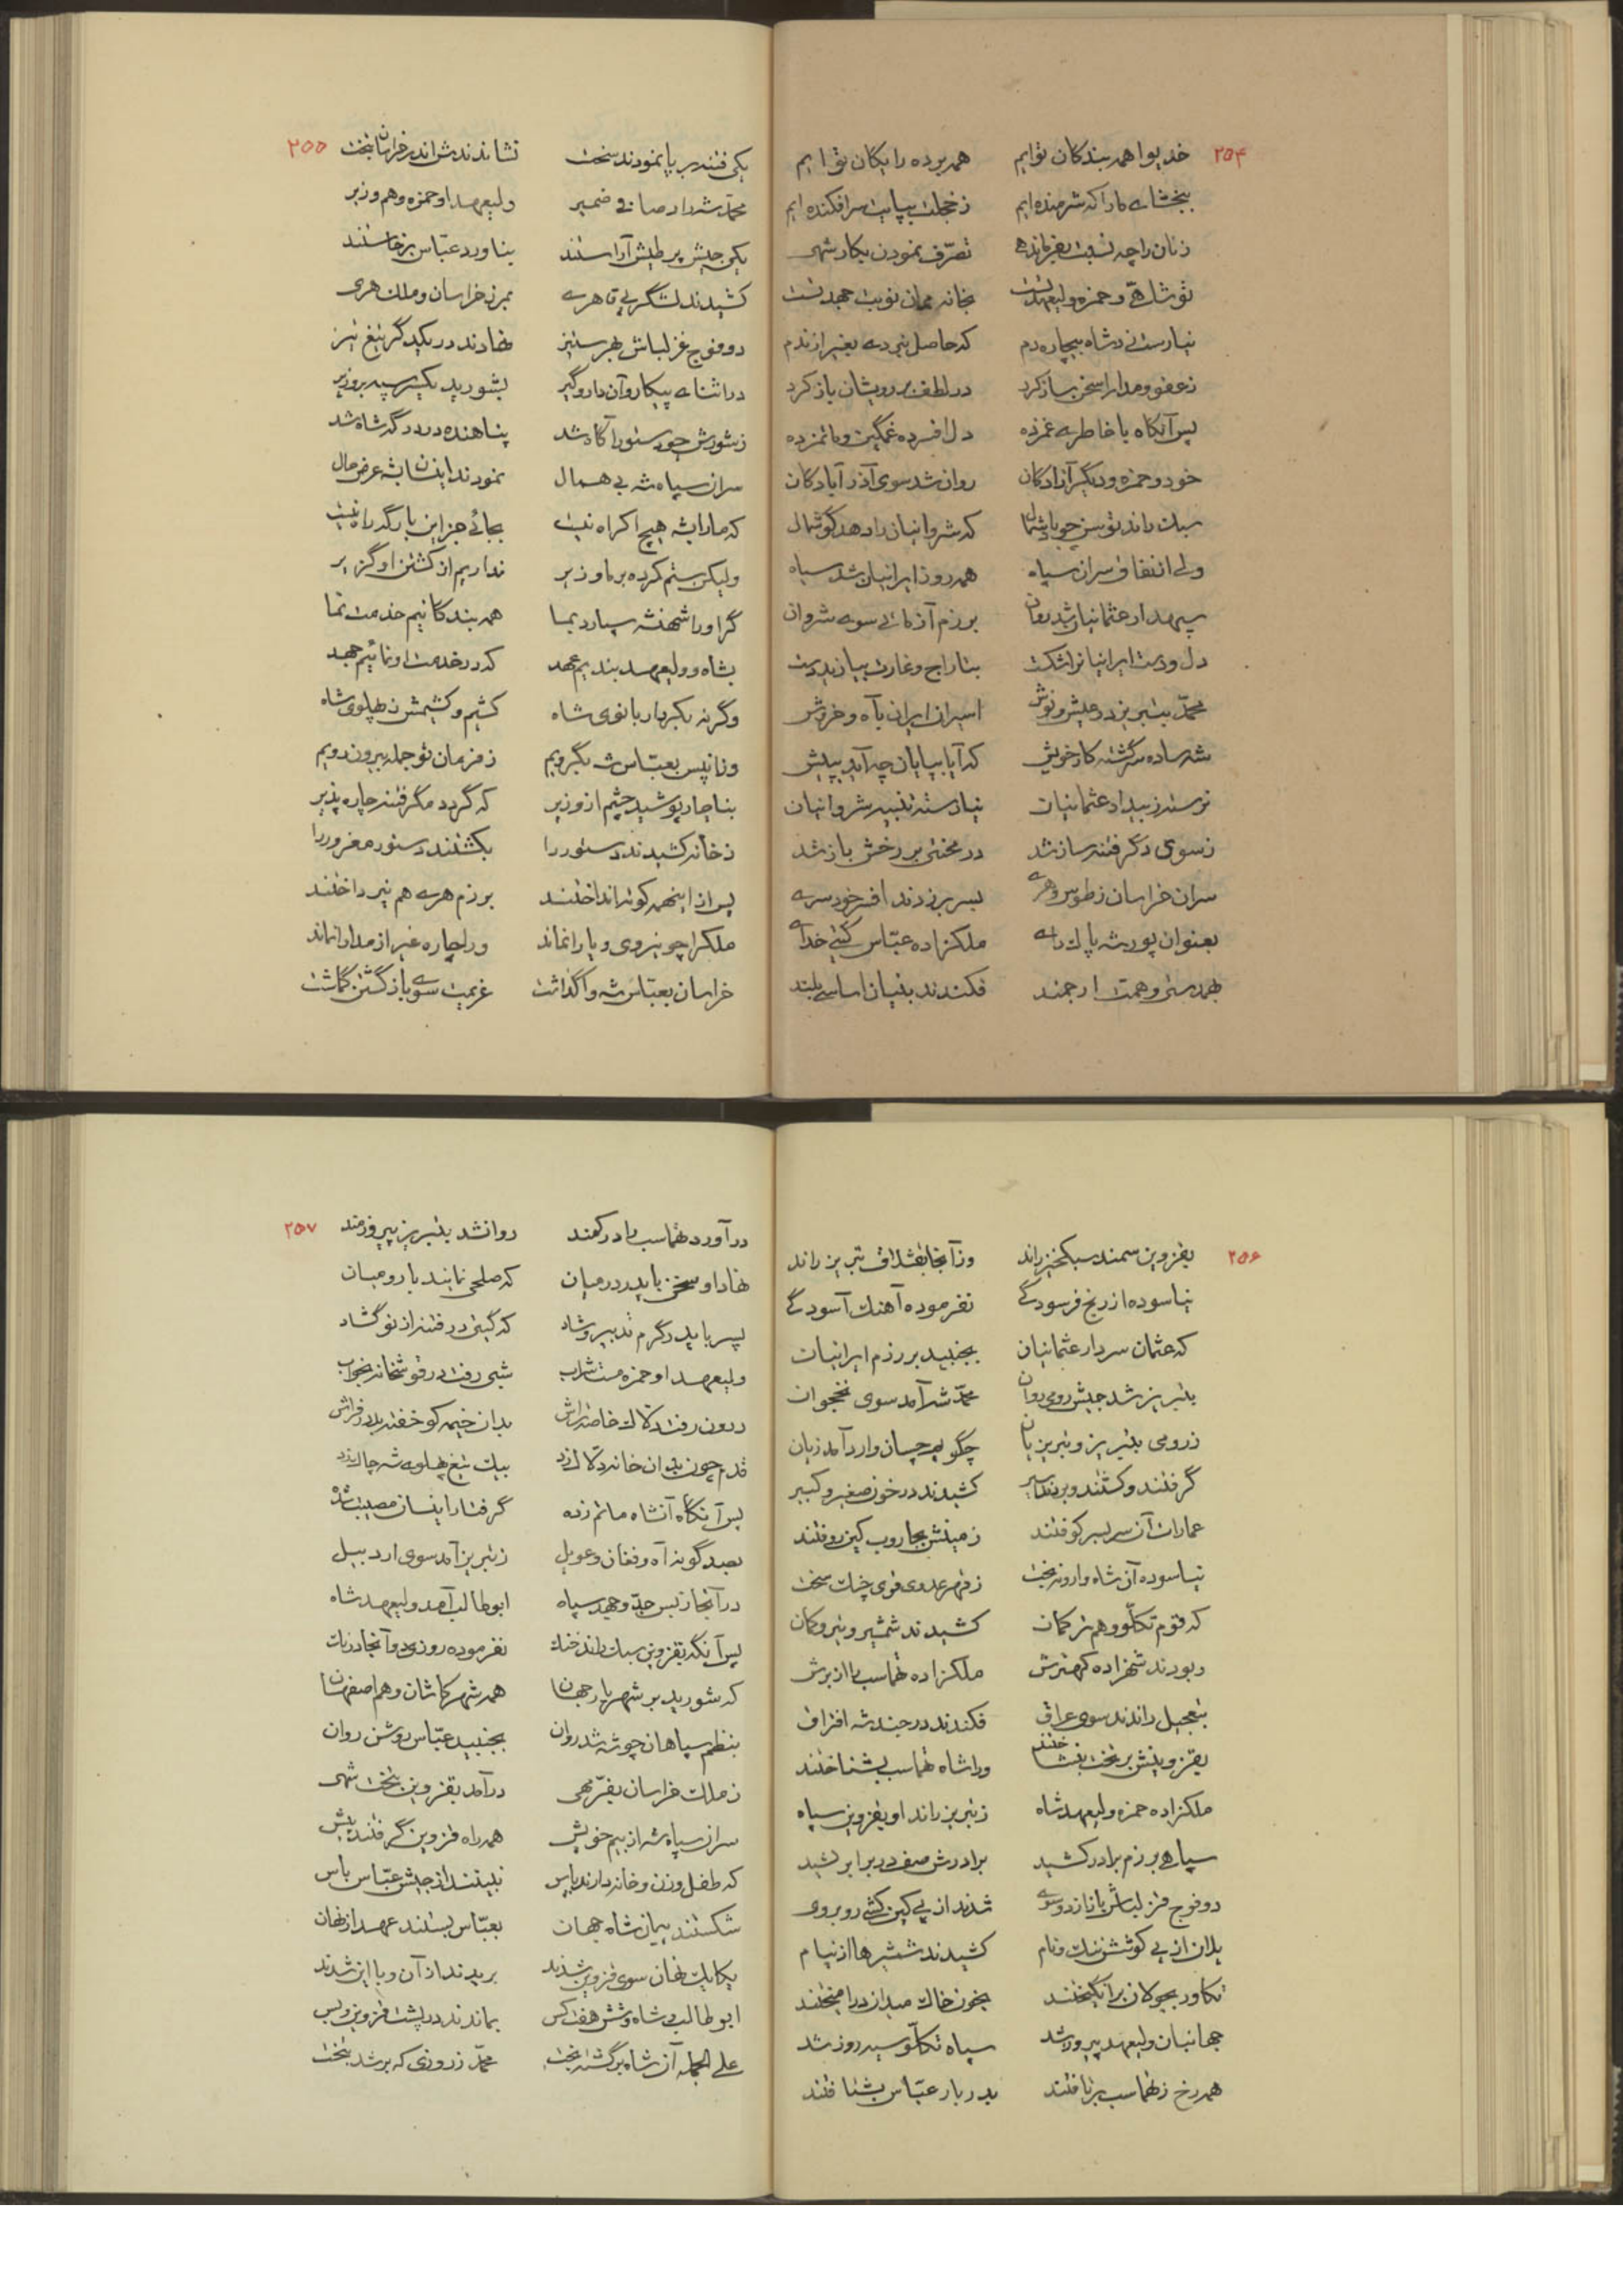 ۲۵۴
خدیوا همه بندکان توایم همه برده رایکان توایم
ببخشای ما را که شرمنده‌ایم ز خجلت بپایت سر افکنده‌ایم
زنان را چه نسبت بفرماندهی تصرّف نمودن بکار شهی
تو شاهی و حمزه ولیعهد تست بخانه ممان نوبت جهد تست
نیارست زد شاه بیچاره دم که حاصل نمی‌دید بغیر از ندم
ز عفو و مدارا سخن ساز کرد در لطف بر رویشان باز کرد
پس آنکاه با خاطری غمزده دل افسرده غمگین و ماتم‌زده
خود و حمزه و دیگر آزادکان روان شد سوی آذرآبادکان
سبک راند توسن چو باد شمال که شروانیان را دهد کوشمال
ولی از نفاق سران سپاه همه روز ایرانیان شد سیاه
سپهدار عثمانیان شد روان برزم آزمائی سوی شروان
دل و دست ایرانیانرا شکست بتاراج و غارت بیازید دست
محمّد بتبریز در عیش و نوش اسیران ایران بآه و خروش
شه ساده سرگشته کار خویش که آیا بپایان چه آید به پیش
نرسته ز بیداد عثمانیان نیارسته تنبیه شروانیان
ز سوی دگر فتنه ساز شد در محنتی بر رخش باز شد
سران خراسان ز طوس و هری بسر بر زدند افسر خودسری
بعنوان پور شه پاک رای ملکزاده عبّاس کیتی خدای
بهمدستی و همت ارجمند فکندند بنیان اساسی بلند
۲۵۵
یکی فتنه بر پا نمودند سخت نشاندندش اندر خراسان بتخت
محمّد شد از صافی ضمیر ولیعهد او حمزه و هم وزیر
یکی جیش پر طیش آراستند بناورد عبّاس برخاستند
کشیدند لشگر بی قاهری بمرز خراسان و ملک هری
دو فوج غزلباش بهر ستیز نهادند در یکدگر تیغ تیز
در اثنای پیکار و آن دار و گیر بشورید یکسر سپه بر وزیر
ز شورش چو دستور آگاه شد پناهنده در درگه شاه شد
سران سپاه شه بی همال نمودند اینسان بشه عرض حال
که ما را بشه هیچ اکراه نیست بجائی جز این بارگه راه نیست
ولیکن ستم کرده بر ما وزیر نداریم از کشتن او گزیر
گر او را شهنشه سپارد بما همه بندکانیم خدمت نما
بشاه و ولیعهد بندیم عهد که در خدمت او نمائیم جهد
وگرنه بکیریم بانوی شاه کشیم و کشیمش ز پهلوی شاه
وزان پس بعبّاس شه بگرویم ز فرمان تو جمله بیرون رویم
بناچار پوشید چشم از وزیر که گردد مگر فتنه چاره پذیر
ز خانه کشیدند دستور را بکشتند دستور مغرور را
پس از اینهمه کوته انداختند برزم هری هم نپرداختند
ملکرا چو نیروی و یارا نماند ورا چاره غیر از مدارا نماند
خراسان بعبّاس شه واگذاشت عزیمت سوی بازگشتن گماشت
۲۵۶
بقزوین سمند سبکخیز راند وز آنجا بقشلاق تبریز راند
نیاسوده از رنج فرسودگی نفرموده آهنک آسودگی
که عثمان سردار عثمانیان بجنبید بر رزم ایرانیان
بتبریز شد جیش رومی روان محمّد شه آمد سوی نخجوان
ز رومی بتبریز و تبریزیان چگویم چسان وارد آمد زیان
گرفتند و کشتند و بردند اسیر کشیدند در خون صغیر و کبیر
عمارات آن سر بسر کوفتند زمینش بجاروب کین روفتند
نیاسوده آن شاه وارونه بخت ز قهر عدوی قوی چنک سخت
که قوم تکلّو و هم ترکمان کشیدند شمشیر و تیر و کمان
ربودند شهزاده کهترش ملکزاده تهماسب را از برش
بتعجیل راندند سوی عراق فکندند در جند شه افتراق
بقزوینش بر تخت بنشاختند ورا شاه تهماسب بشناختند
ملکزاده حمزه ولیعهد شاه ز تبریز راند او بقزوین سپاه
سپاهی برزم برادر کشید برادرش صف در برابر کشید
دو فوج قزلباش باز از دو سوی شدند از پی کین کشی روبروی
یلان از پی کوشش ننک و نام کشیدند شمشیرها از نیام
تکاور بجولان برانگیختند بخون خاک میدان درآمیختند
جهانبان ولیعهد پیروز شد سپاه تکلّو سیه روز شد
همه رخ ز تهماسب برتافتند بدربار عبّاس بشتافتند
۲۵۷
درآورد تهماسب را در کمند روانشد بتبریز پیروزمند
نهاد او سخن با پدر در میان که صلحی نمایند با رومیان
پسر با پدر گرم تدبیر و شاد که گیتی در فتنه از نو گشاد
ولیعهد او حمزه مست شراب شبی رفت در قوشخانه بخواب
درون رفت دلّاک خاصه تراش بدان خیمه کو خفته بد در فراش
قدم چون بدان خانه دلّاک زد بیک تیغ پهلوی شه چاک زد
پس آنکاه آنشاه ماتم زده گرفتار اینسان مصیبت شده
بصد گونه آه و فغان و عویل ز تبریز آمد سوی اردبیل
در آنجا ز بس جدّ و جهد سپاه ابوطالب آمد ولیعهد شاه
پس آنگه بقزوین سبک راند خنک نفرموده روزی دو آنجا درنک
که شورید بر شهریار جهان همه شهر کاشان و هم اصفهان
بنظم سپاهان چو شه شد روان بجنبید عبّاس روشن روان
ز ملک خراسان بفرّ مهی درآمد بقزوین بتخت شهی
سران سپاه شه از بیم خویش همه راه قزوین گرفتند پیش
که طفل و زن و خانه دارند پاس نبینند از جیش عبّاس باس
شکستند پیمان شاه جهان بعبّاس بستند عهد از نهان
یکایک نهان سوی قزوین شدند بریدند از آن و با این شدند
ابوطالب و شاه و شش هفت کس بماندند در پشت قزوین و بس
علی الجمله آن شاه برگشته بخت محمّد ز روزی که بر شد بتخت